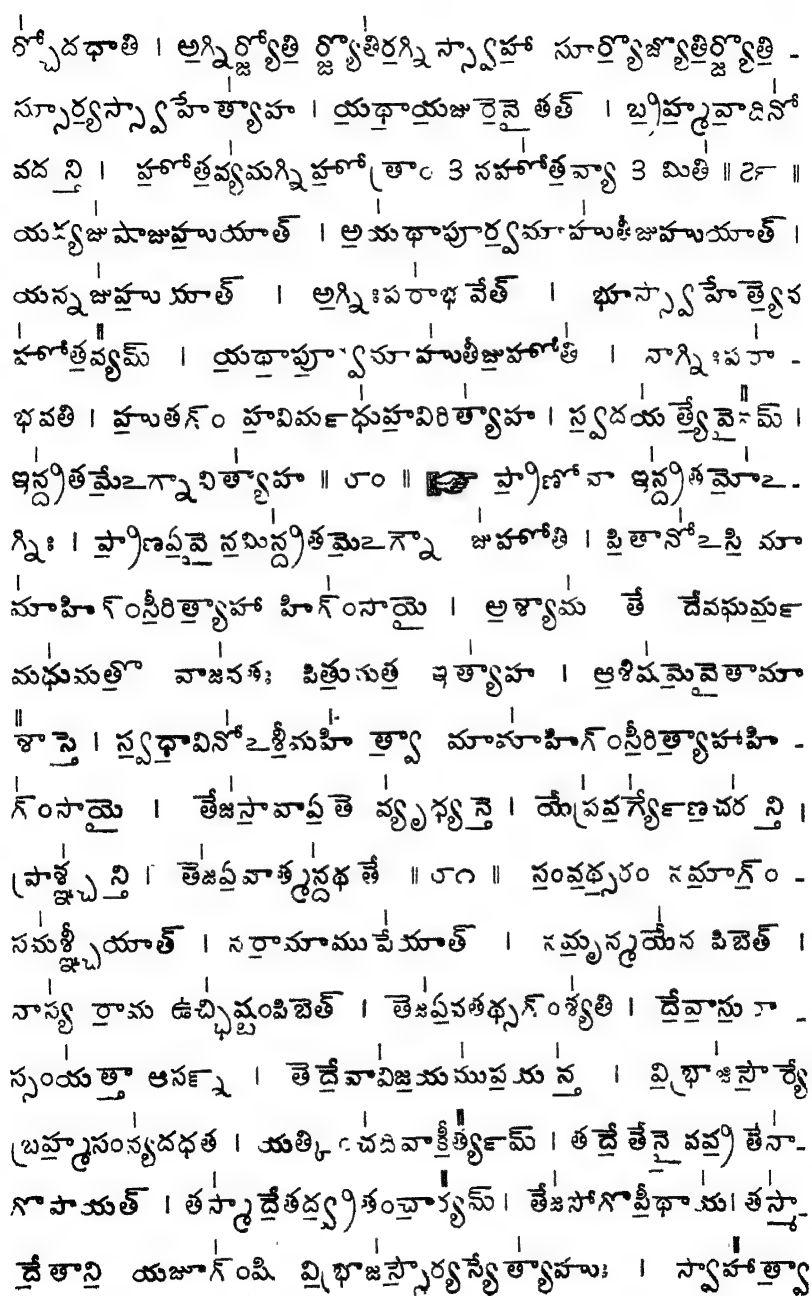 ర్చోదధాతి । అగ్నిర్జ్యోతి ర్జ్యోతిరగ్ని స్స్వాహా సూర్యోజ్యోతిర్జ్యోతి -
స్సూర్యస్స్వాహేత్యాహ । యథాయజురేవై తత్ । బ్రహ్మవాదినో
వదన్తి । హోతవ్యమగ్నిహోత్రాం ౩ నహోతవ్యా ౩ మితి ॥ ౭౯ ॥
యద్యజుషాజుహుయాత్ । అయథాపూర్వమాహుతీజుహుయాత్ ।
యన్నజుహుయాత్ । అగ్నిఃపరాభవేత్ । భూస్స్వాహేత్యేవ
హోతవ్యమ్ । యథాపూర్వమాహుతీజుహోతి । నాగ్నిఃపరా -
భవతి । హుతగ్ం హవిర్మధుహవిరిత్యాహ । స్వదయత్యేవైనమ్ ।
ఇన్ద్రతమేఽగ్నావిత్యాహ ॥ ౮౦ ॥ ప్రాణోవా ఇన్ద్రతమోఽ -
గ్నిః । ప్రాణఏవై నమిన్ద్రతమేఽగ్నౌ జుహోతి । పితానోఽసి మా
మాహిగ్ంసీరిత్యాహా హిగ్ంసాయై । అశ్యామ తే దేవఘర్మ
మధుమతో వాజవతః పితుమత ఇత్యాహ । ఆశిషమేవైతామా
శాస్తే । స్వధావినోఽశీమహి త్వా మామాహిగ్ంసీరిత్యాహాహి -
గ్ంసాయై । తేజసావాఏతే వ్యృధ్యన్తే । యేప్రవర్గ్యేణచరన్తి ।
ప్రాశ్నన్తి । తేజఏవాత్మన్దధతే ॥ ౮౧ ॥ సంవథ్సరం నమాగ్ం -
సమశ్నీయాత్ । నరామాముపేయాత్ । నమృన్మయేన పిబేత్ ।
నాస్య రామ ఉచ్ఛిష్టంపిబేత్ । తేజఏవతథ్సగ్ంశ్యతి । దేవాసురా -
స్సంయత్తా ఆసన్న్ । తే దేవావిజయముపయన్త । విభ్రాజిసౌర్యే
బ్రహ్మసంన్యదధత । యత్కించదివాకీర్త్యమ్ । తదేతేనైవవ్రతేనా-
గోపాయత్ । తస్మాదేతద్వ్రతంచార్యమ్ । తేజసోగోపీథాయ । తస్మా
దేతాని యజూగ్ంషి విభ్రాజస్సౌర్యస్యేత్యాహుః । స్వాహాత్వా